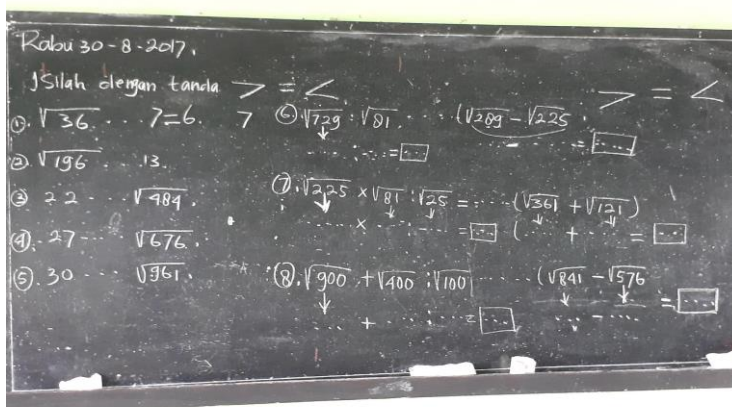 Rabu 30-8-2017.
Isilah dengan tanda > = <
> = <
①. √36 ... 7=6. 7
②. √196 ... 13.
③ 22 ... √484.
④. 27 ... √676.
⑤. 30 ... √961.
⑥. √729 : √81 ... (√289 - √225
... : ... = .... ... - ... = ....
⑦. √225 × √81 : √25 = ... (√361 + √121)
... × ... ... = .... (... + ... = ....
⑧. √900 + √400 : √100 ... (√841 - √576
... + ... : ... = .... ... - ... = ....